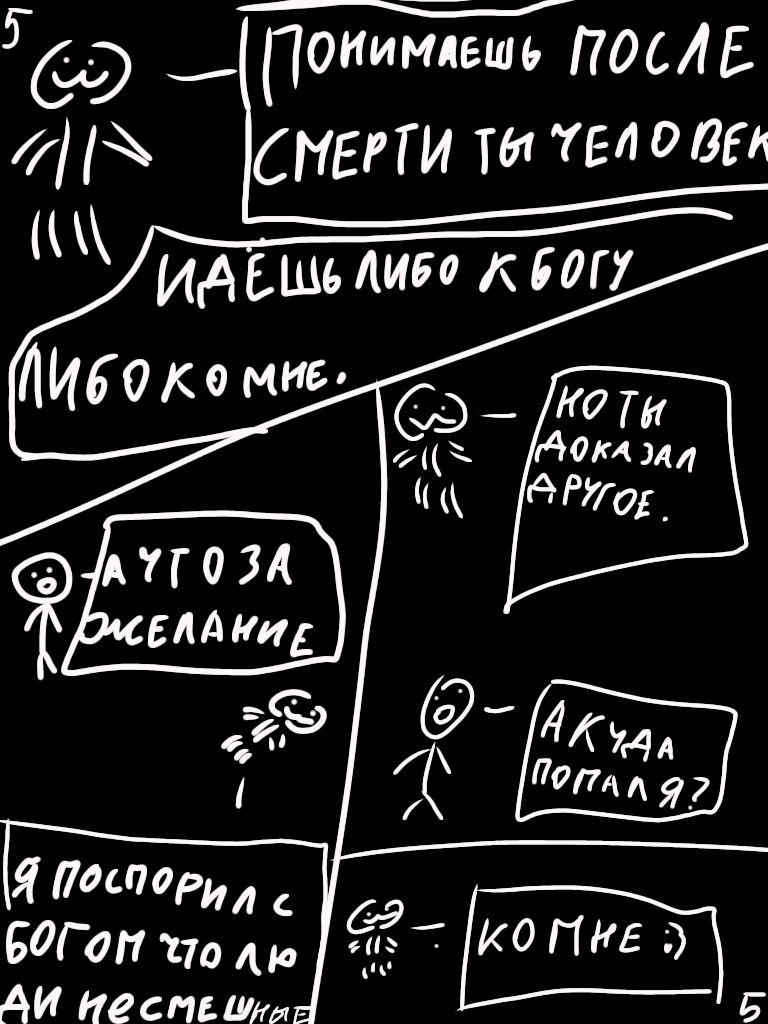 5
ПОНИМАЕШЬ ПОСЛЕ
СМЕРТИ ТЫ ЧЕЛОВЕК
ИДЁШЬ ЛИБО К БОГУ
ЛИБО КО МНЕ.
А ЧТО ЗА
ЖЕЛАНИЕ
Я ПОСПОРИЛ С
БОГОМ ЧТО ЛЮ
ДИ НЕСМЕШНЫЕ
НО ТЫ
ДОКАЗАЛ
ДРУГОЕ.
А КУДА
ПОПАЛ Я?
КО МНЕ :)
5